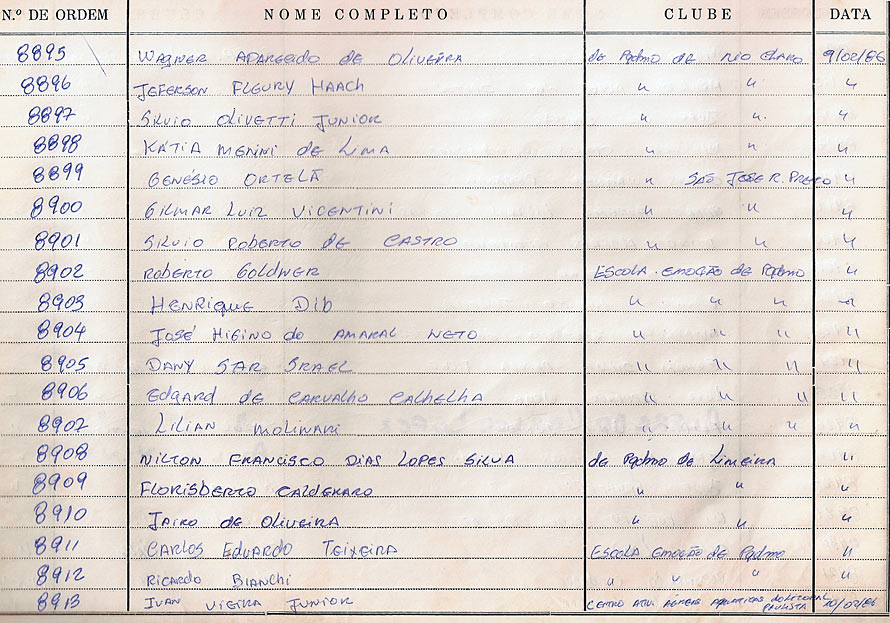 N.º DE ORDEM NOME COMPLETO CLUBE DATA
8895 WAGNER APARECIDO DE OLIVEIRA de Pqdmo DE RIO CLARO 9/02/86
8896 JEFERSON FLEURY HAACH " " "
8897 SILVIO OLIVETTI JUNIOR " " "
8898 KÁTIA MENINI de LIMA " " "
8899 GENÉSIO ORTELÃ " SÃO JOSE R. PRETO "
8900 GILMAR LUIZ VICENTINI " " "
8901 SILVIO ROBERTO DE CASTRO " " "
8902 ROBERTO GOLDNER ESCOLA EMOÇÃO de Pqdmo "
8903 HENRIQUE DIB " " " "
8904 JOSÉ HIGINO do AMARAL NETO " " " "
8905 DANY SAR SRAEL " " " "
8906 Edgard de CARVALHO CALHELHA " " " "
8907 LILIAN MOLINARI " " " "
8908 NILTON FRANCISCO DIAS LOPES SILVA de Pqdmo de Limeira "
8909 FLORISBERTO CALDERARO " " "
8910 JAIRO de OLIVEIRA " " "
8911 CARLOS EDUARDO TEIXEIRA ESCOLA EMOÇÃO de Pqdmo "
8912 RICARDO BIANCHI " " " "
8913 IVAN VIEIRA JUNIOR CENTRO ATIV. AÉREAS AQUATICAS DO LITORAL PAULISTA 10/02/86